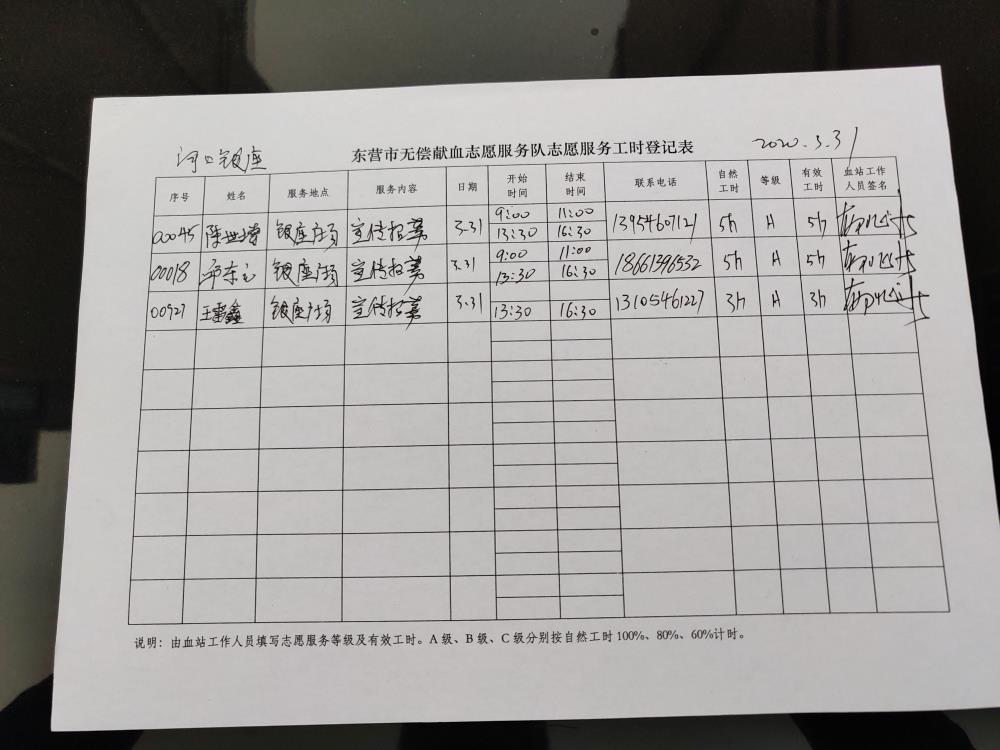 河口银座 东营市无偿献血志愿服务队志愿服务工时登记表 2020.3.31
序号 姓名 服务地点 服务内容 日期 开始时间 结束时间 联系电话 自然工时 等级 有效工时 血站工作人员签名
00045 陈世增 银座广场 宣传招募 3.31 9:00 11:00 13:30 16:30 13954607121 5h A 5h
00018 银座广场 宣传招募 3.31 9:00 11:00 13:30 16:30 18661396532 5h A 5h
00927 王雷鑫 银座广场 宣传招募 3.31 13:30 16:30 13105461227 3h A 3h
说明：由血站工作人员填写志愿服务等级及有效工时。A 级、B 级、C 级分别按自然工时 100%、80%、60%计时。